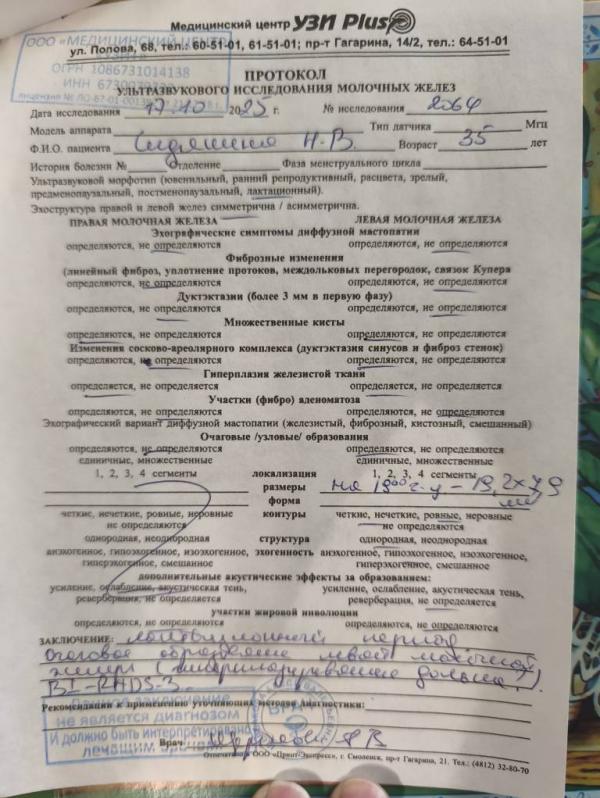 Медицинский центр УЗИ Plus
ул. Попова, 68, тел.: 60-51-01, 61-51-01; пр-т Гагарина, 14/2, тел.: 64-51-01
ООО «МЕДИЦИНСКИЙ ЦЕНТР
ОГРН 1086731014138
ИНН
ПРОТОКОЛ
УЛЬТРАЗВУКОВОГО ИССЛЕДОВАНИЯ МОЛОЧНЫХ ЖЕЛЕЗ
Дата исследования 17.10 2025 г. № исследования 2064
Модель аппарата Тип датчика Мгц
Ф.И.О. пациента Н.В. Возраст 35 лет
История болезни № Отделение Фаза менструального цикла
Ультразвуковой морфотип (ювенильный, ранний репродуктивный, расцвета, зрелый,
предменопаузальный, постменопаузальный, лактационный).
Эхоструктура правой и левой желез симметрична / асимметрична.
ПРАВАЯ МОЛОЧНАЯ ЖЕЛЕЗА ЛЕВАЯ МОЛОЧНАЯ ЖЕЛЕЗА
Эхографические симптомы диффузной мастопатии
определяются, не определяются определяются, не определяются
Фиброзные изменения
(линейный фиброз, уплотнение протоков, междольковых перегородок, связок Купера
определяются, не определяются определяются, не определяются
Дуктэктазии (более 3 мм в первую фазу)
определяются, не определяются определяются, не определяются
Множественные кисты
определяются, не определяются определяются, не определяются
Изменения сосково-ареолярного комплекса (дуктэктазия синусов и фиброз стенок)
определяются, не определяются определяются, не определяются
Гиперплазия железистой ткани
определяется, не определяется определяется, не определяется
Участки (фибро) аденоматоза
определяются, не определяются определяются, не определяются
Эхографический вариант диффузной мастопатии (железистый, фиброзный, кистозный, смешанный)
Очаговые /узловые/ образования
определяются, не определяются определяются, не определяются
единичные, множественные единичные, множественные
1, 2, 3, 4 сегменты локализация 1, 2, 3, 4 сегменты
размеры на
форма мм
четкие, нечеткие, ровные, неровные контуры четкие, нечеткие, ровные, неровные
не определяются не определяются
однородная, неоднородная структура однородная, неоднородная
анэхогенную, гипоэхогенное, изоэхогенное, эхогенность анэхогенное, гипоэхогенное, изоэхогенное,
гиперэхогенное, смешанное гиперэхогенное, смешанное
дополнительные акустические эффекты за образованием:
усиление, ослабление, акустическая тень, усиление, ослабление, акустическая тень,
реверберация, не определяется реверберация, не определяется
участки жировой инволюции
определяются, не определяются определяются, не определяются
ЗАКЛЮЧЕНИЕ: лактационный период
Очаговое образование левой молочной
железы
BI-RADS-3.
Рекомендации к применению уточняющих методов диагностики:
Данное заключение
не является диагнозом
И должно быть интерпретировано
лечащим врачом
Врач
Отпечатано в ООО «Принт-Экспресс», г. Смоленск, пр-т Гагарина, 21. Тел.: (4812) 32-80-70